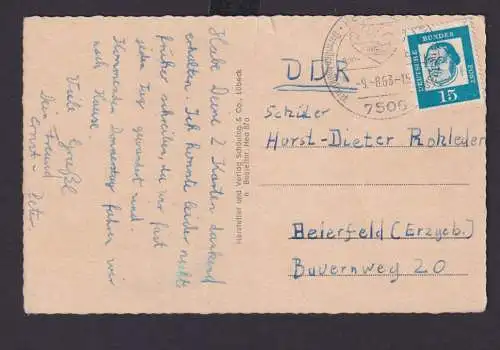 Habe Deine 2 Karten dankend
erhalten. Ich konnte leider nicht
früher schreiben, da wir fast
jeden Tag gewandert sind.
Kommenden Donnerstag fahren wir
nach Hause.
Viele Grüße!
Dein Freund
Ernst-Peter
Hersteller und Verlag Schöning & Co., Lübeck
DDR
Schüler
Horst-Dieter Rohleder
Beierfeld (Erzgeb.)
Bauernweg 20
-9.-8.63-15
7506
DEUTSCHE BUNDESPOST
15